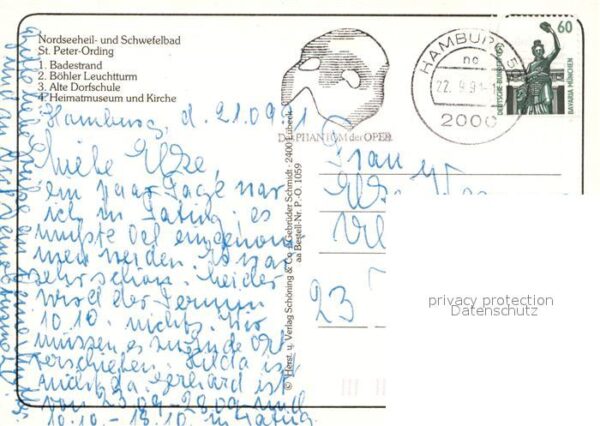 Nordseeheil- und Schwefelbad
St. Peter-Ording
1. Badestrand
2. Böhler Leuchtturm
3. Alte Dorfschule
4. Heimatmuseum und Kirche
Hamburg, d. 21.09.91
Liebe Elze,
ein paar Tage war
ich in Tating. es
mußte Oel eingenom
men werden. Es war
sehr schön. Leider
wird der Termin
10.10. nichts. Wir
müssen es zu Ende Okt
verschieben. Hilda ist
nicht da. Gerhard ist
von 23.09-28.09 und
10.10 - 18.10. in Tating
DAS PHANTOM der OPER
HAMBURG
22.9.91
2000
60
DEUTSCHE BUNDESPOST
BAVARIA MÜNCHEN
© Herst. u. Verlag Schöning & Co + Gebrüder Schmidt · 2400 Lübeck
aa Bestell-Nr. P.-O. 1059
Frau
Elze
23
privacy protection
Datenschutz